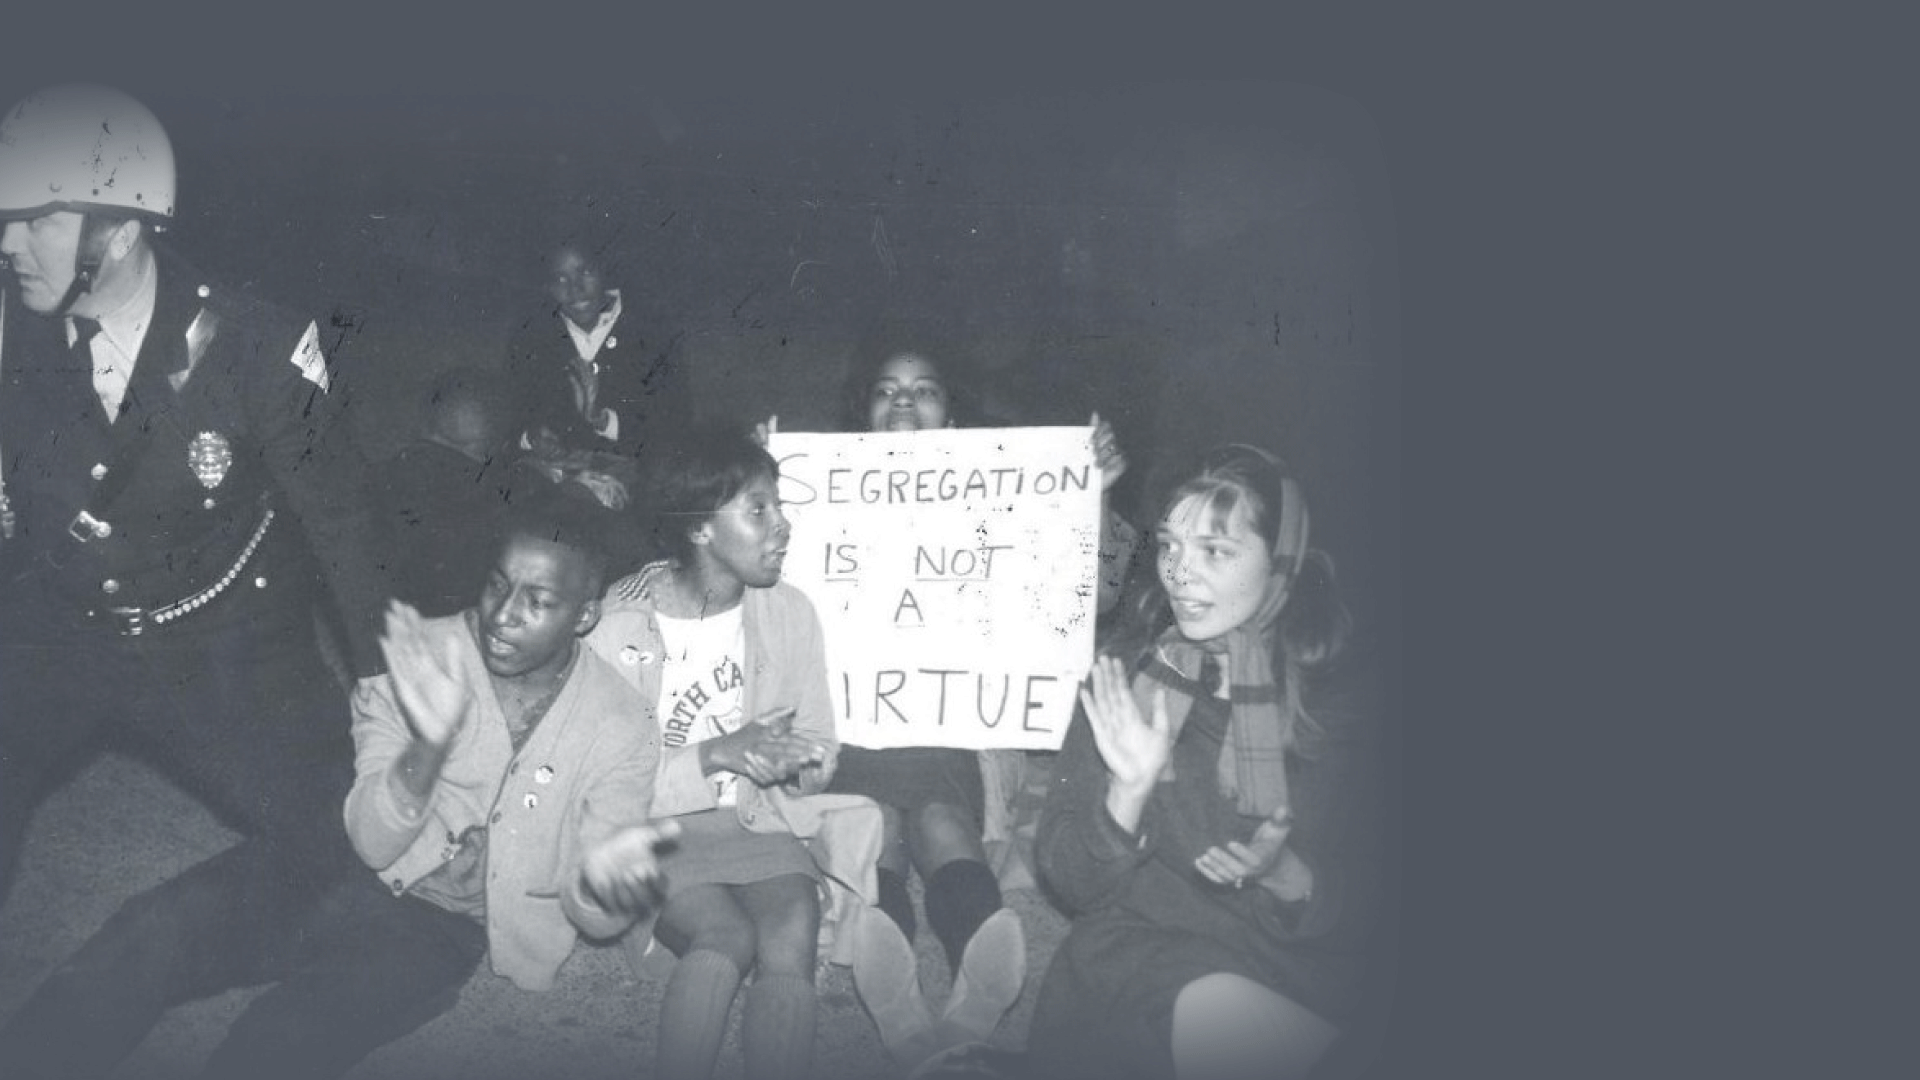 SEGREGATION
IS NOT
A
IRTUE
ORTH CA